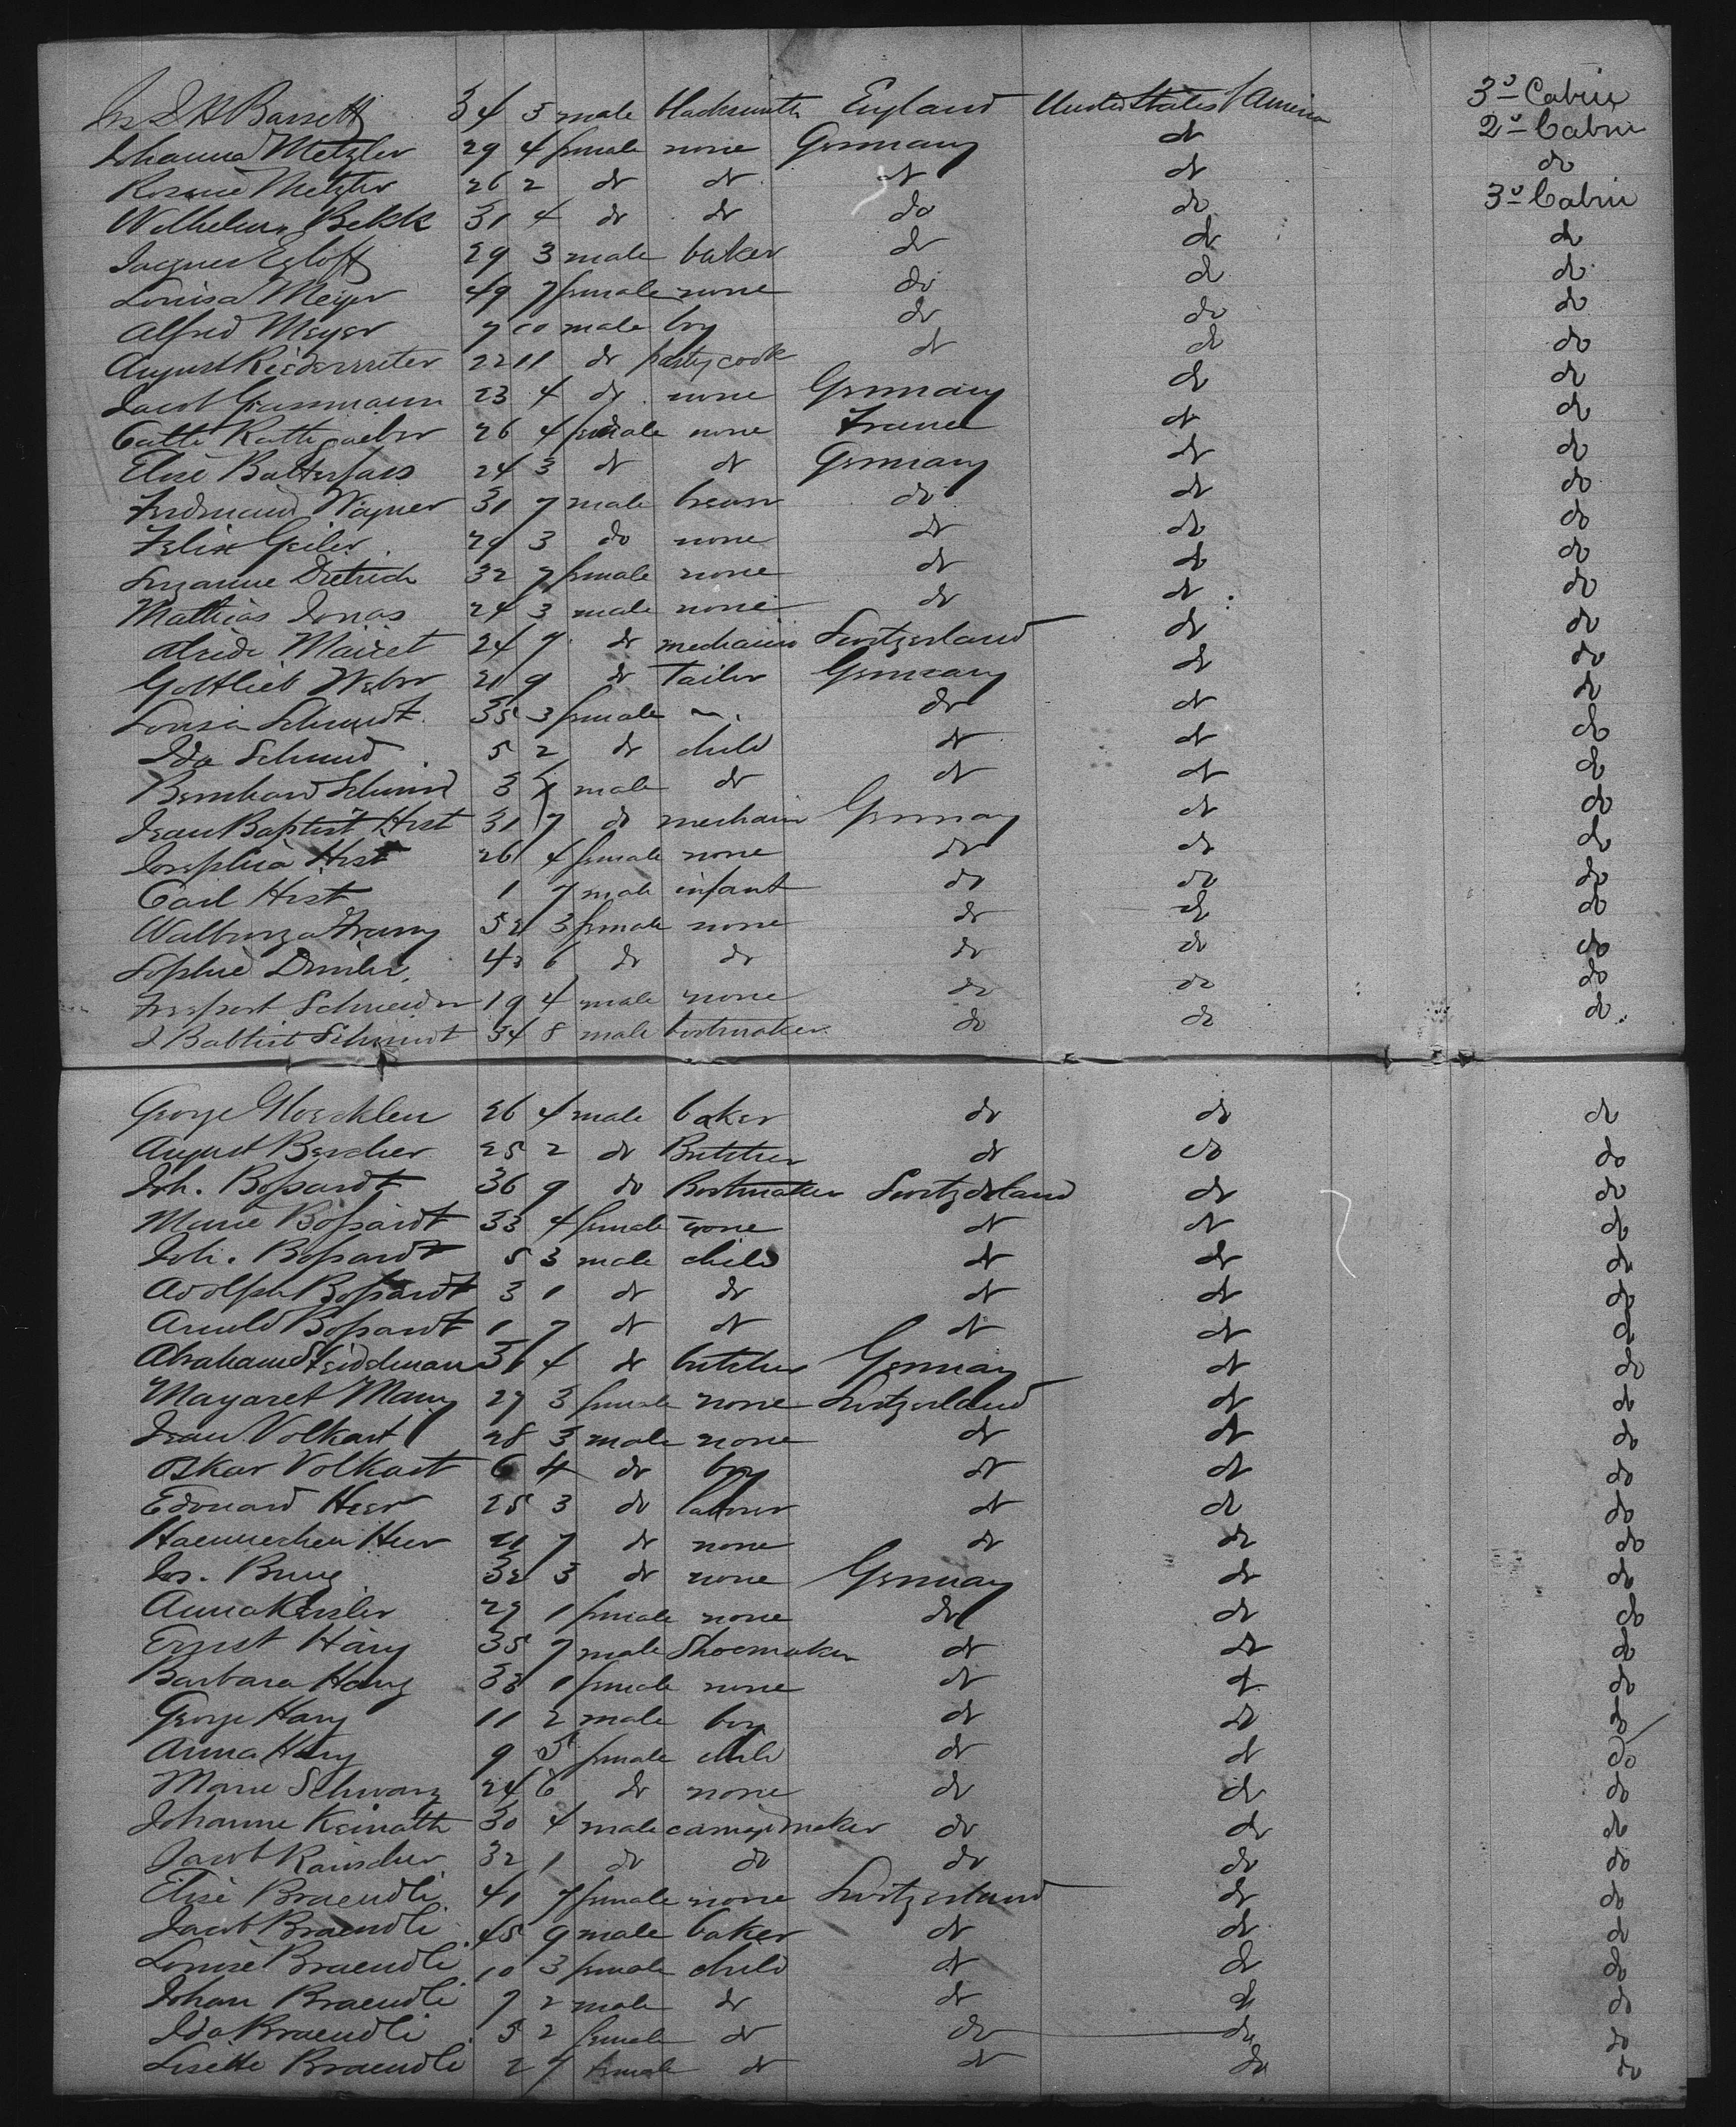 Jos D H Bassett 34 5 male blacksmith England United States America 3º Cabin
Johanna Metzler 29 4 female none Germany do 2º Cabin
Rosine Metzler 26 2 do do do do do
Wilhelm Bekk 31 4 do do do do 3º Cabin
Jacques Egloff 29 3 male baker do do do
Louisa Meyer 49 7 female none do do do
Alfred Meyer 7 10 male boy do do do
August 22 11 do pastycook do do do
Jacob Grassmann 23 4 do none Germany do do
26 4 female none France do do
Elise Butterfass 24 3 do do Germany do do
Ferdinand Wagner 31 7 male brewer do do do
Felix Geiler 24 3 do none do do do
Suzanne Dietrich 32 7 female none do do do
Mathias Jonas 24 3 male none do do do
Mairet 24 7 do mechanic Switzerland do do
Gottlieb Weber 21 9 do Tailor Germany do do
Louisa Schmidt 35 3 female do do do
Ida Schmid 5 2 do child do do do
Bernhard Schmid 3 male do do do do
Jean Baptist Hist 31 7 do mechanic Germany do do
Josephia Hist 26 4 female none do do do
Carl Hist 1 7 male infant do do do
Walburga Frany 52 3 female none do do do
Sophie 43 6 do do do do do
Schneider 19 4 male none do do do
J Babtist Schmidt 34 8 male bootmaker do do do
George Gloecklen 26 4 male baker do do do
August Bercher 25 2 do Butcher do do do
Joh. Bossardt 36 9 do Bootmaker Switzerland do do
Marie Bossardt 33 4 female none do do do
Joh. Bossardt 5 3 male child do do do
Adolph Bossardt 3 1 do do do do do
Arnold Bossardt 1 7 do do do do do
Abraham Seidelmann 36 4 do butcher Germany do do
Magaret Many 27 3 female none Switzerland do do
Jean Volkart 28 3 male none do do do
Oskar Volkart 6 4 do boy do do do
Edouard Heer 25 3 do laborer do do do
Heer 21 7 do none do do do
Jos. Brug 32 3 do none Germany do do
Anna Kesler 27 1 female none do do do
Ernst Hary 35 7 male Shoemaker do do do
Barbara Hary 33 1 female none do do do
George Hary 11 2 male boy do do do
Anna Hary 9 5 female child do do do
Marie Schwarz 24 6 do none do do do
Johanne Keinath 30 4 male carriagemaker do do do
Jacob Rauscher 32 1 do do do do do
Elise Braendli 41 7 female none Switzerland do do
Jacob Braendli 45 9 male baker do do do
Louise Braendli 10 3 female child do do do
Johan Braendli 7 2 male do do do do
Ida Braendli 5 2 female do do do do
Lisette Braendli 2 7 female do do do do